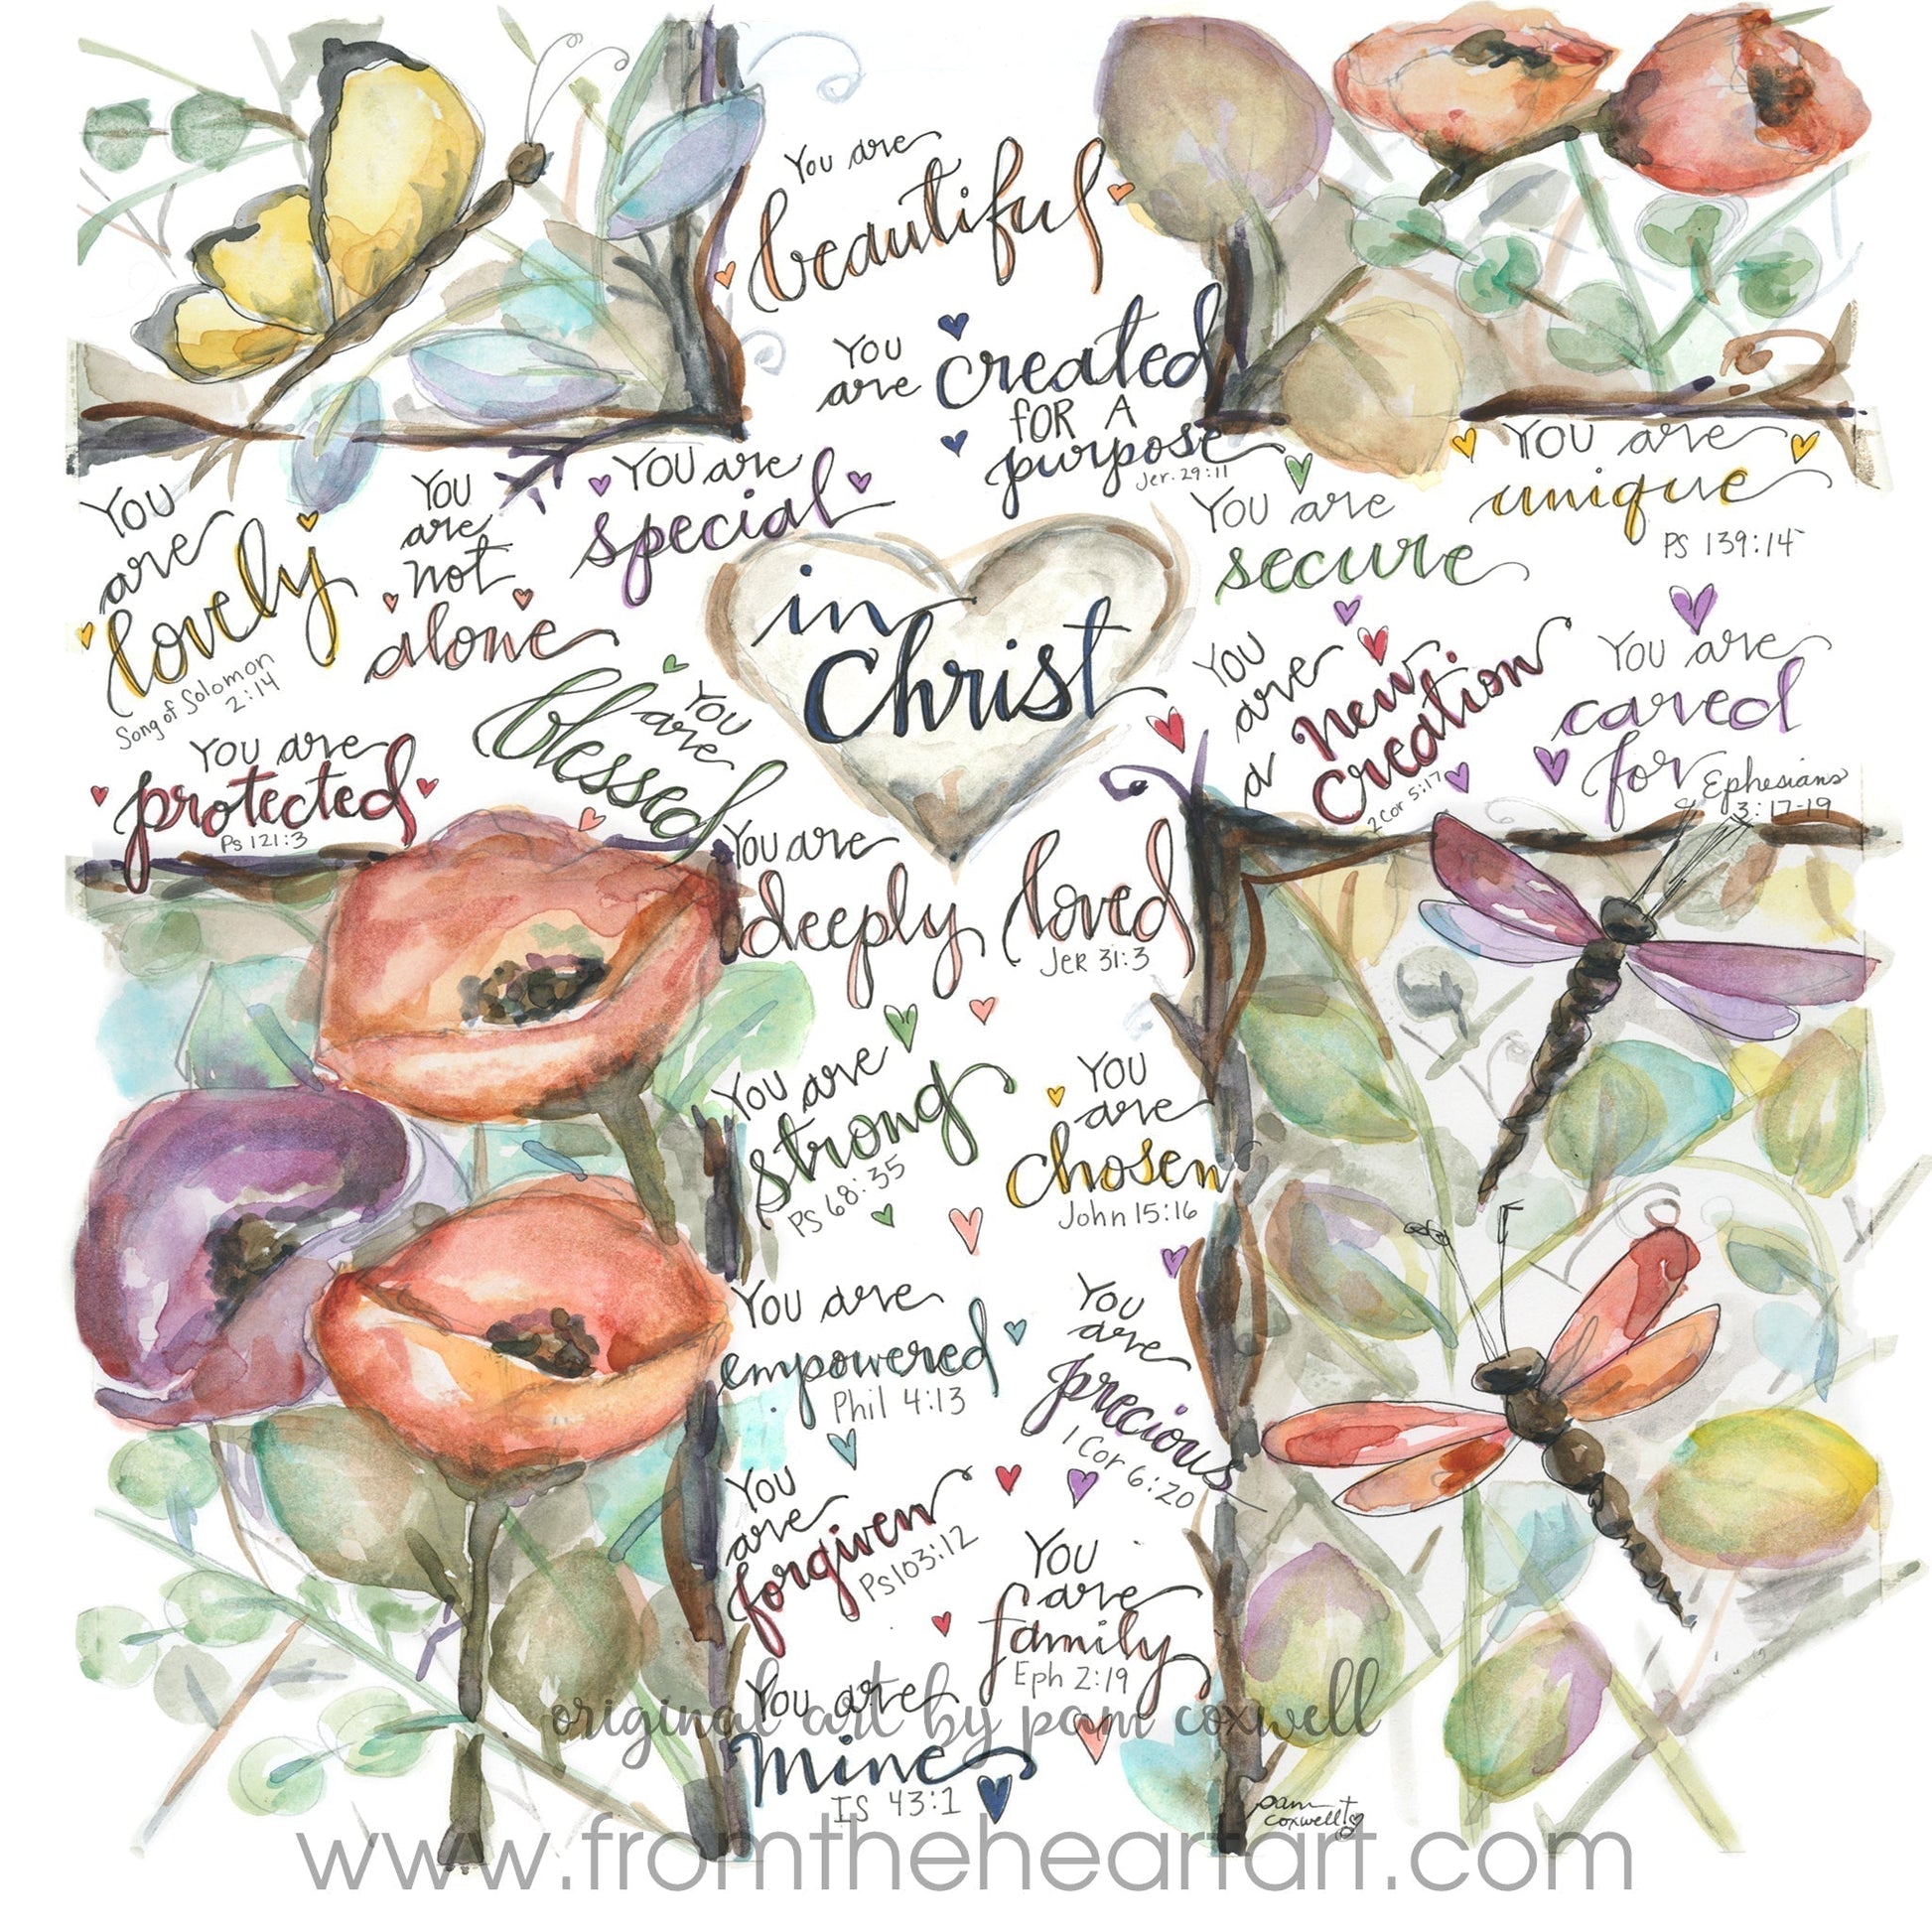 You are
beautiful
You
are
created
FOR A
purpose
Jer. 29:11
You
are
lovely
Song of Solomon
2:14
You
are
not
alone
You are
special
in
Christ
You are
secure
You are
unique
PS 139:14
You are
protected
Ps 121:3
You
are
blessed
You
are
a new
creation
2 Cor 5:17
You are
cared
for
Ephesians
3:17-19
You are
deeply loved
Jer 31:3
You are
strong
Ps 68:35
You
are
chosen
John 15:16
You are
empowered
Phil 4:13
You
are
precious
1 Cor 6:20
You
are
forgiven
Ps 103:12
You
are
family
Eph 2:19
You are
mine
IS 43:1
original art by pam coxwell
pam
coxwell
www.fromtheheartart.com